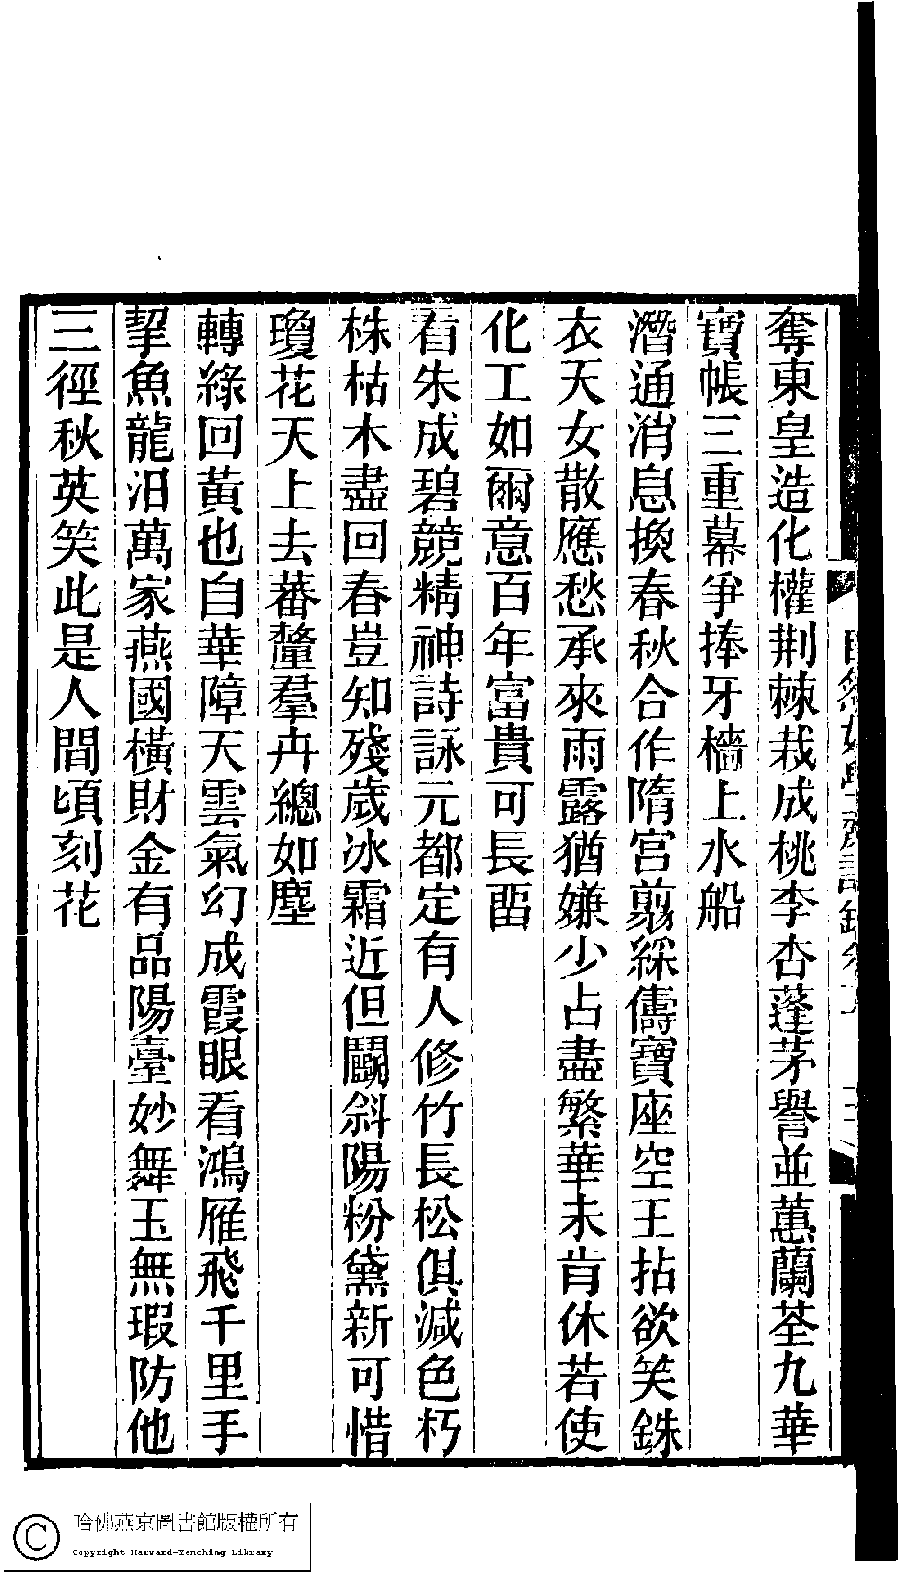 奪東皇造化權荆棘栽成桃李杏蓬茅譽並蕙蘭荃九華
寶帳三重幕爭捧牙檣上水船
潛通消息換春秋合作隋宮翦綵儔寶座空王拈欲笑銖
衣天女散應愁承來雨露猶嫌少占盡繁華未肯休若使
化工如爾意百年富貴可長畱
看朱成碧競精神詩詠元都定有人修竹長松俱減色朽
株枯木盡回春豈知殘歲冰霜近但鬭斜陽粉黛新可惜
瓊花天上去蕃釐羣卉總如塵
轉綠回黃也自華障天雲氣幻成霞眼看鴻雁飛千里手
挈魚龍汨萬家燕國橫財金有品陽臺妙舞玉無瑕防他
三徑秋英笑此是人間頃刻花
哈佛燕京圖書館版權所有
Copyright Harvard-Yenching Library